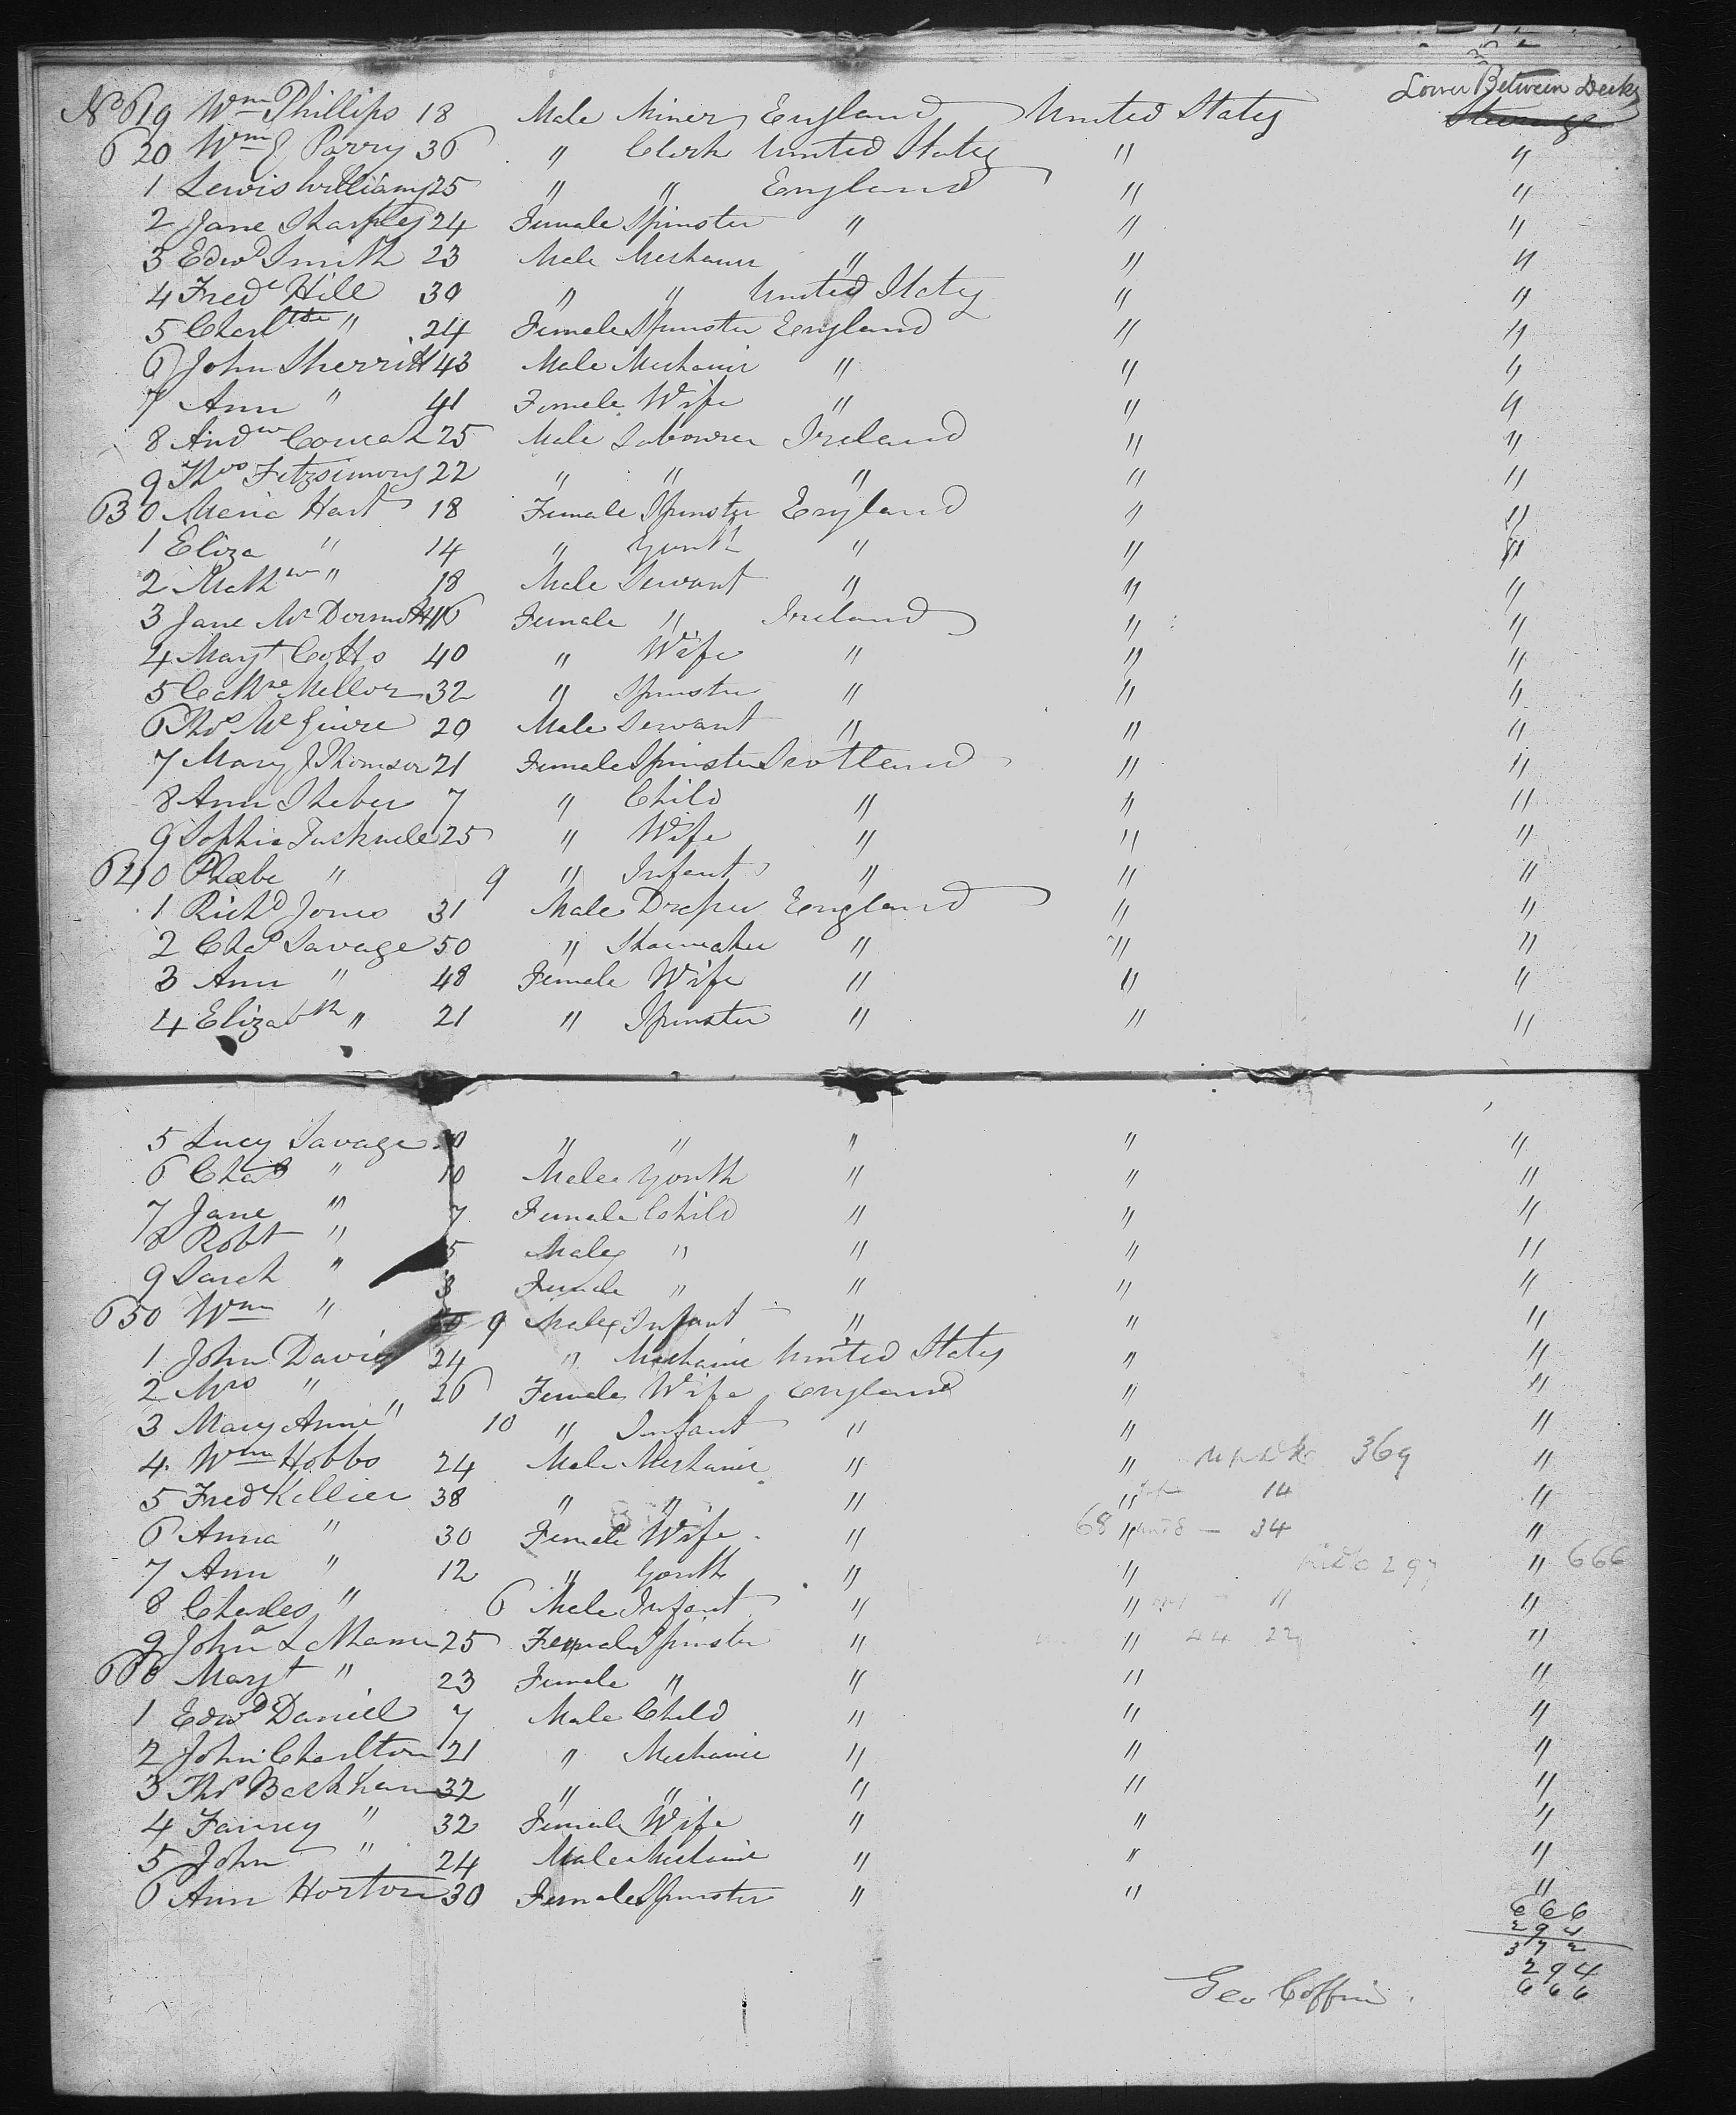 Lower Between Decks
No 619 Wm Phillips 18 Male Miner England United States Steerage
620 Wm J Parry 36 " Clerk United States " "
1 Lewis Williams 25 " " England " "
2 Jane Sharples 24 Female Spinster " " "
3 Edwd Smith 23 Male Mechanic " " "
4 Fredk Hill 30 " " United States " "
5 Charltte " 24 Female Spinster England " "
6 John Sherritt 43 Male Mechanic " " "
7 Ann " 41 Female Wife " " "
8 Andw 25 Male Labourer Ireland " "
9 Thos Fitzsimons 22 " " " " "
630 Maria Hart 18 Female Spinster England " "
1 Eliza " 14 " Youth " " "
2 Mathw " 18 Male Servant " " "
3 Jane McDermott 46 Female " Ireland " "
4 Margt Cotts 40 " Wife " " "
5 Cathne Mellor 32 " Spinster " " "
6 Thos McGuire 20 Male Servant " " "
7 Mary J Thomson 21 Female Spinster Scotland " "
8 Ann 7 " Child " " "
9 Sophia 25 " Wife " " "
640 Phœbe " 9 " Infant " " "
1 Richd Jones 31 Male Draper England " "
2 Chas Savage 50 " Shoemaker " " "
3 Ann " 48 Female Wife " " "
4 Elizabth " 21 " Spinster " " "
5 Lucy Savage " " " " "
6 Chas " 10 Male Youth " " "
7 Jane " 7 Female Child " " "
8 Robt " 5 Male " " " "
9 Sarah " 3 Female " " " "
650 Wm " 9 Male Infant " " "
1 John Davis 24 " Mechanic United States " "
2 Mrs " 26 Female Wife England " "
3 Mary Anne " 10 " Infant " " "
4 Wm Hobbs 24 Male Mechanic " " 369 "
5 Fredk Kellier 38 " " " " 14 "
6 Anna " 30 Female Wife " 68 " 34 "
7 Ann " 12 " Youth " " 297 " 666
8 Charles " 6 Male Infant " " 11 "
9 Johna Latham 25 Female Spinster " " 44 22 "
660 Margt " 23 Female " " " "
1 Edwd Daniel 7 Male Child " " "
2 John Charlton 21 " Mechanic " " "
3 Thos Barkham 32 " " " " "
4 Fanny " 32 Female Wife " " "
5 John " 24 Male Mechanic " " "
6 Ann Horton 30 Female Spinster " " "
666
294
372
294
666
Geo Coffin.